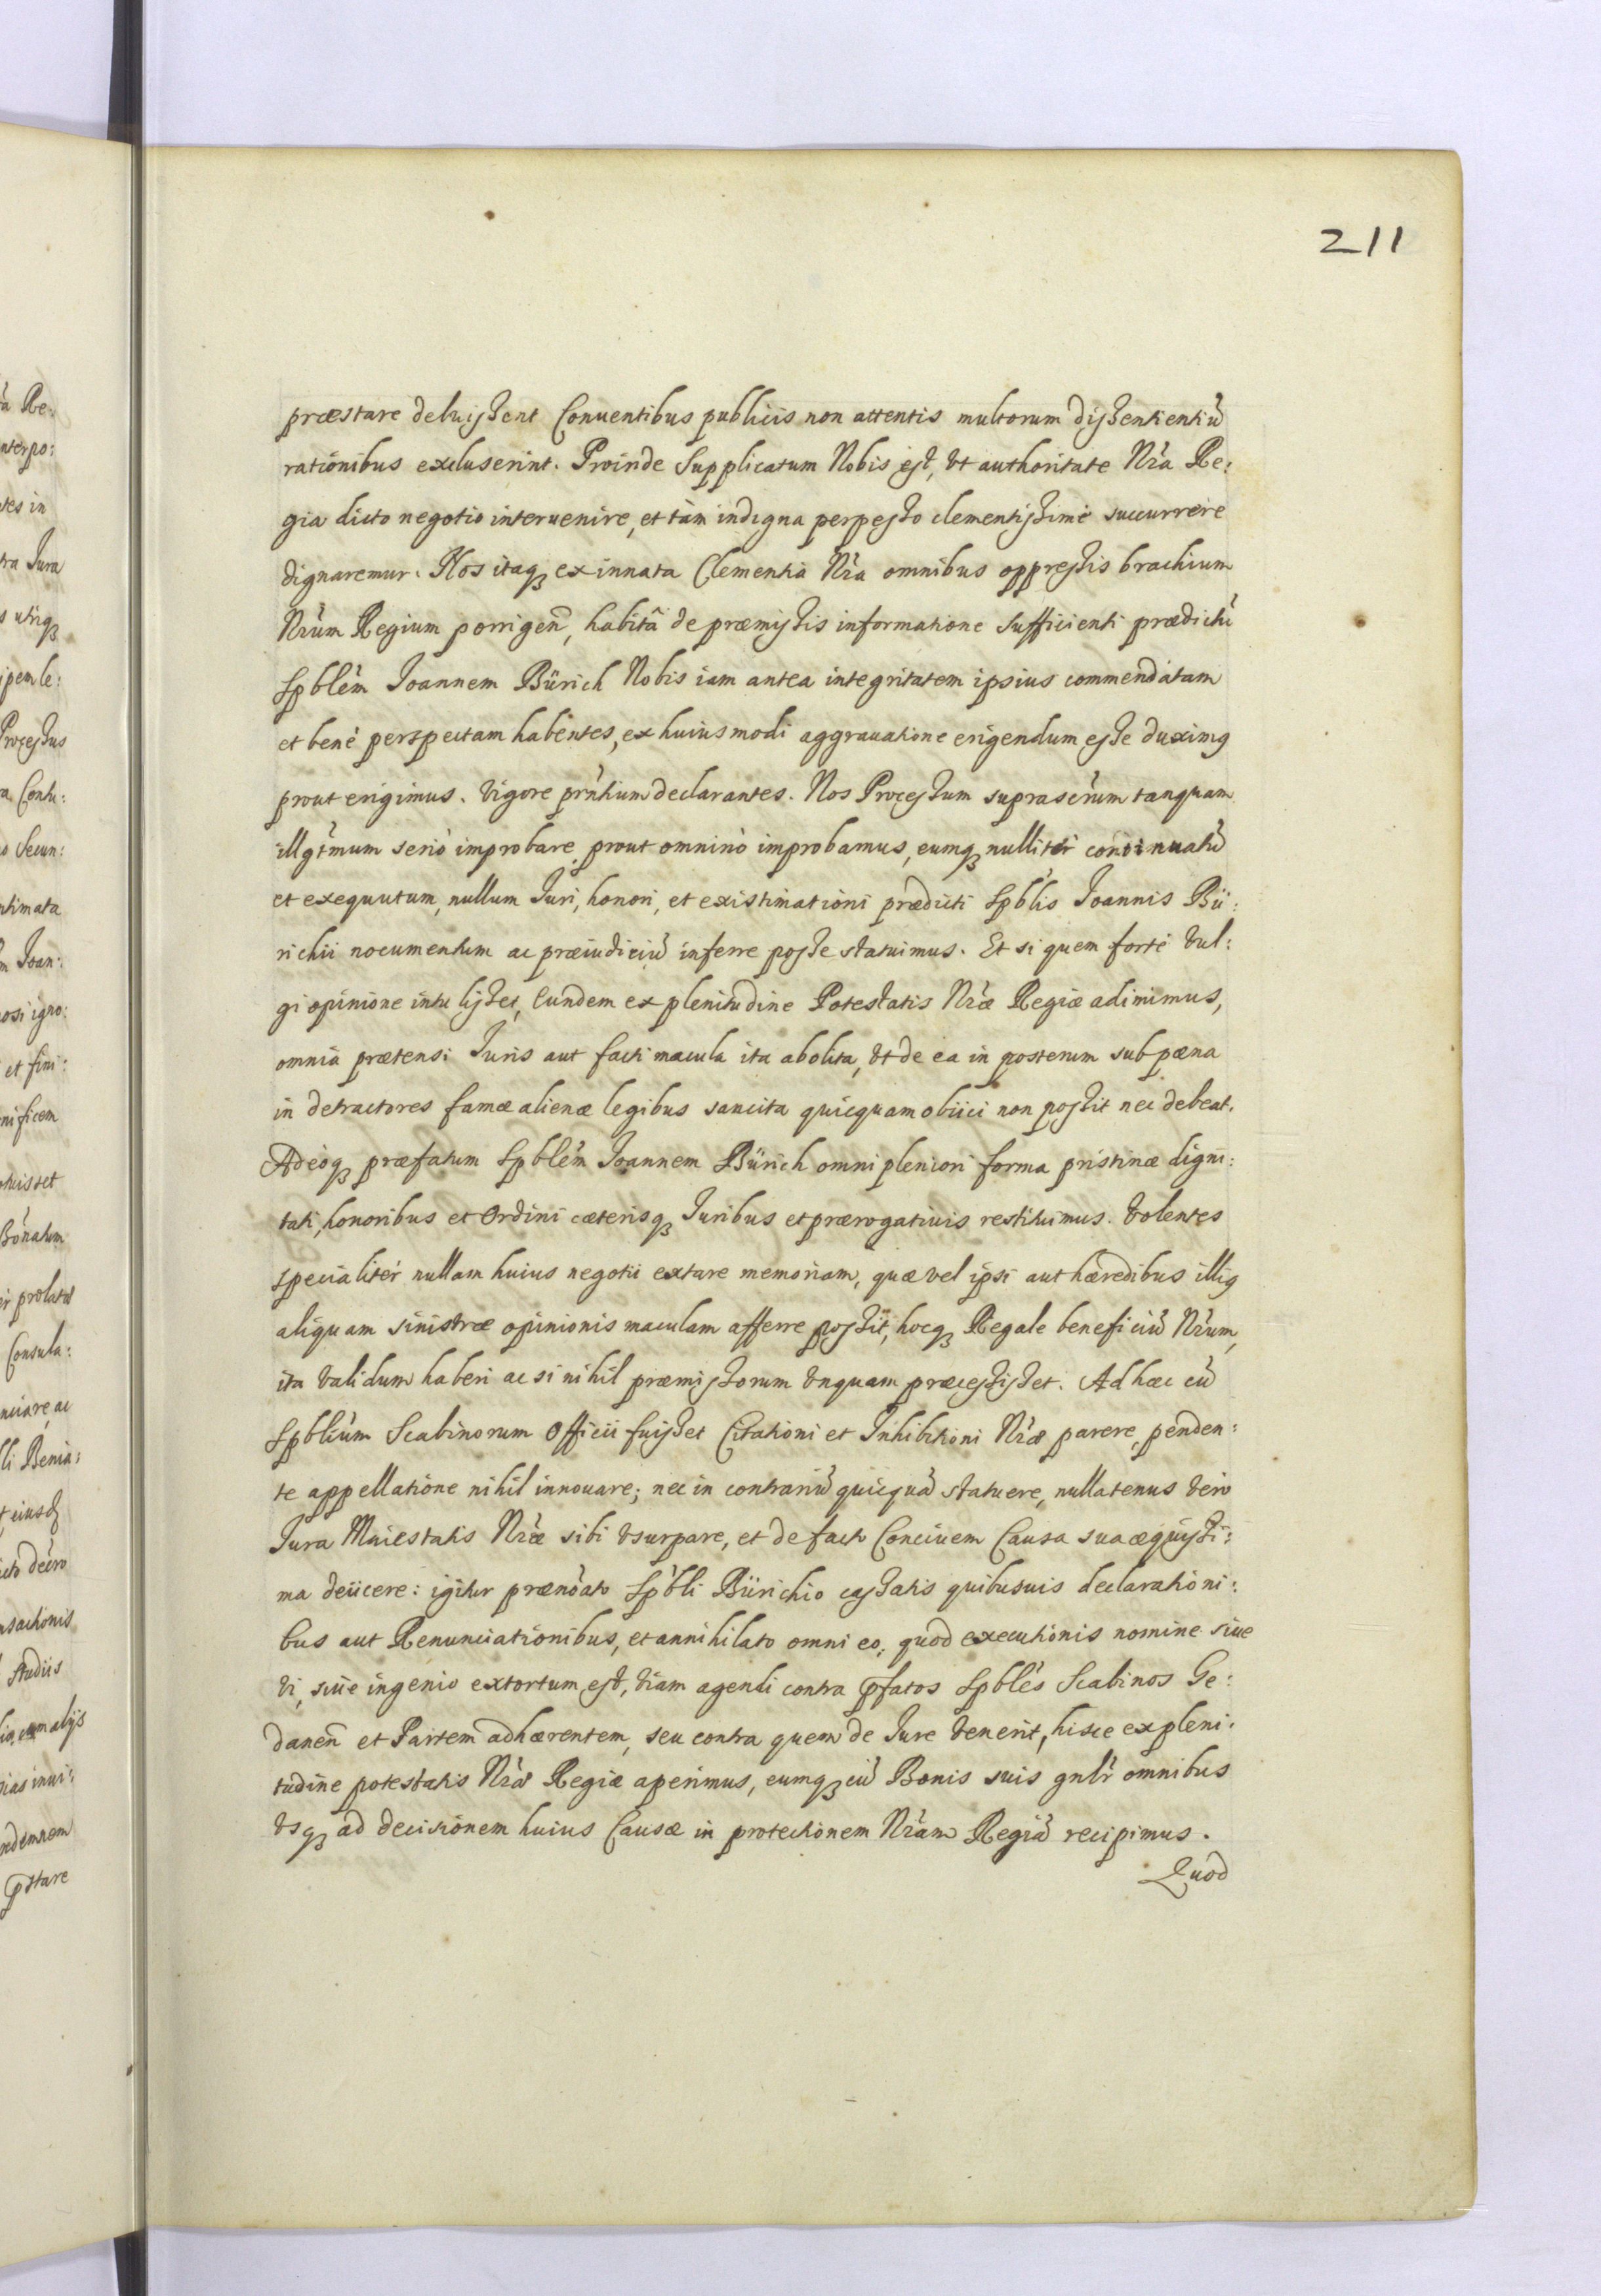 211
præstare debuissent Conuentibus publicis non attentis multorum dissentientiũ
rationibus excluserint. Proinde Supplicatum Nobis est, vt authoritate Nr̃a Re:
gia dicto negotio interuenire, et tàm indigna perpesso clementissimè succurrere
dignaremur. Nos itaqꝫ ex innata Clementia Nr̃a omnibus oppressis brachium
Nr̃um Regium porrigeñ, habitâ de præmissis informatione Sufficienti prædictũ
Spblẽm Joannem Bürich Nobis iam antea integritatem ipsius commendatam
et benè perspectam habentes, ex huiusmodi aggrauatione erigendum esse duximꝰ
prout erigimus. Vigore prñtium declarantes. Nos Processum suprascr̃um tanquam
illgt̃mum seriò improbare, prout omninò improbamus, eumqꝫ nulliter continuatũ
et exequutum, nullum Juri, honori, et existimationi prædicti Spblis Joannis Bü:
richii nocumentum ac præiudiciũ inferre posse statuimus. Et si quem fortè vul:
gi opinione intulisset, Eundem ex plenitudine Potestatis Nr̃æ Regiæ adimimus,
omnia prætensi Juris aut facti macula ita abolita, vt de ea in posterum sub pæna
in detractores famæ alienæ legibus sancita quicquam obiici non possit nec debeat.
Adeoqꝫ præfatum Spblẽm Joannem Bürich omni pleniori forma pristinæ digni:
tati, honoribus et Ordini cæterisqꝫ Juribus et prærogatiuis restituimus. Volentes
specialitèr nullam huius negotii extare memoriam, quæ vel ipsi aut hæredibus illiꝰ
aliquam sinistræ opinionis maculam afferre possit, hocqꝫ Regale beneficiũ Nr̃um,
ita validum haberi ac si nihil præmissorum vnquam præcessisset. Ad hæc cũ
Spbliũm Scabinorum Officii fuisset Citationi et Inhibitioni Nr̃æ parere, penden:
te appellatione nihil innouare; nec in contrariũ quicquã statuere, nullatenus vero
Jura Maiestatis Nr̃æ sibi vsurpare, et de facto Conciuem Causa sua æquissi:
ma deiicere: igitur prænoãto Spbli Bürichio cassatis quibusuis declarationi:
bus aut Renunciationibus, et annihilato omni eo, quod executionis nomine siue
vi, siue ingenio extortum est, viam agendi contra p̃fatos Spblẽs Scabinos Ge:
daneñ et Partem adhærentem, seu contra quem de Jure venerit, hisce ex pleni:
tudine potestatis Nr̃æ Regiæ aperimus, eumqꝫ cũ Bonis suis gnl̃r omnibus
vsqꝫ ad decisionem huius Causæ in protectionem Nr̃am Regiã recipimus.
Quod